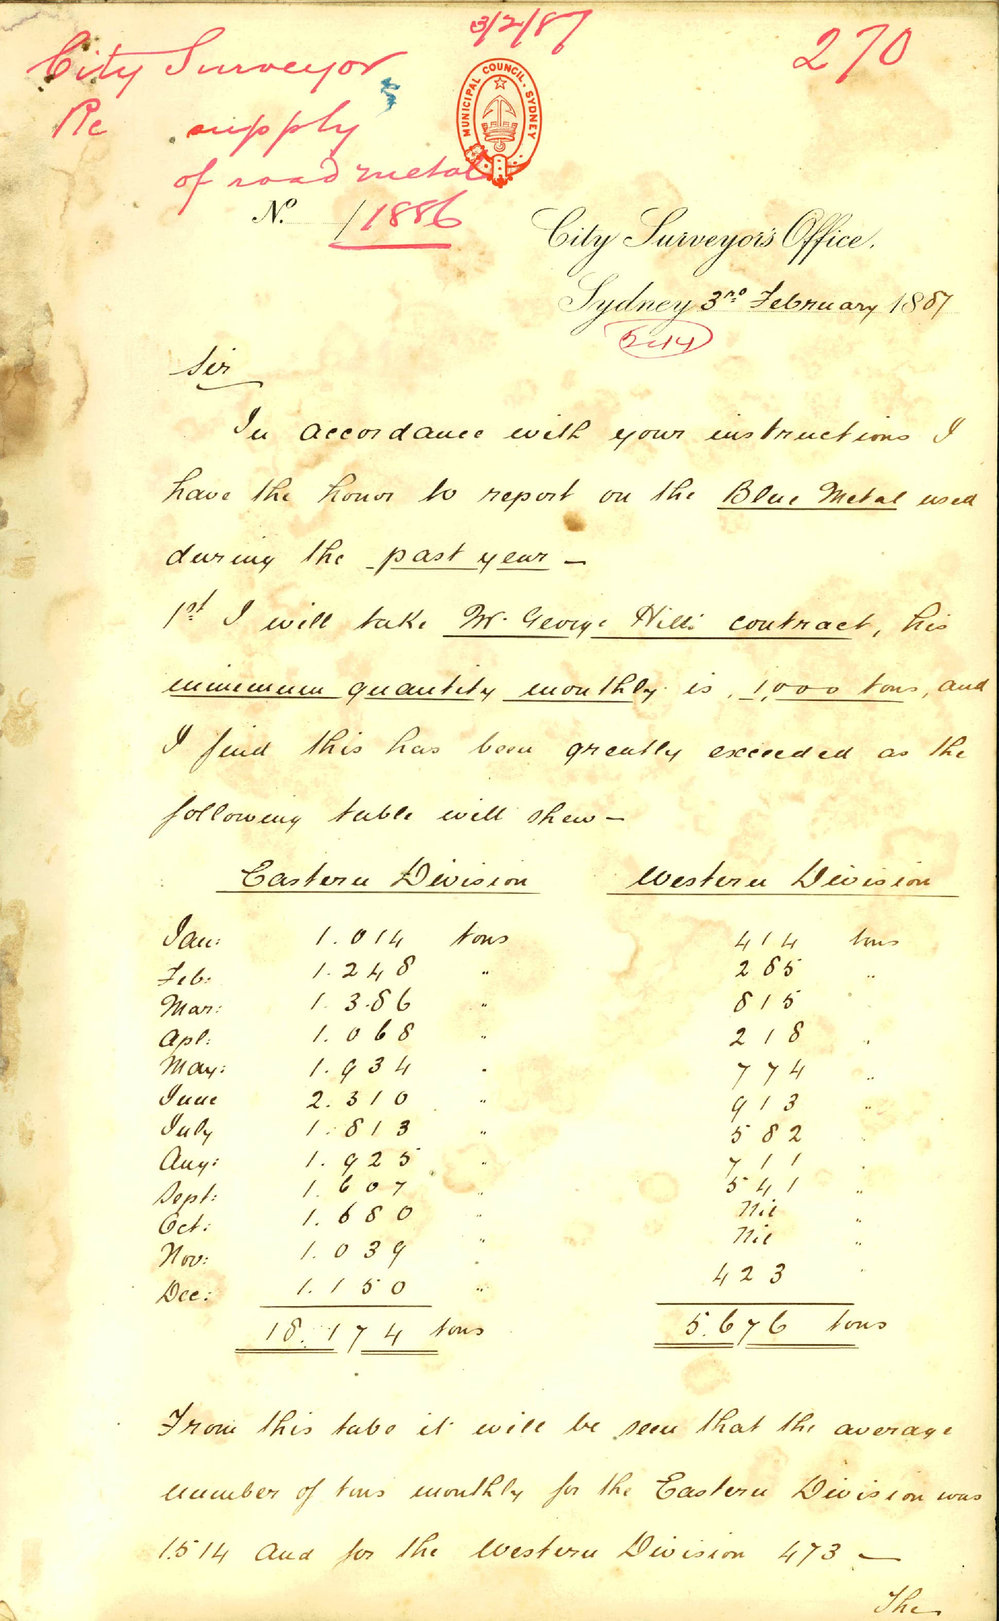 3/2/87
270
City Surveyor
Re supply
of road metal
MUNICIPAL COUNCIL. SYDNEY
No. /1886
City Surveyor's Office.
Sydney 3rd February 1887
Sir
In accordance with your instructions I
have the honor to report on the Blue Metal used
during the past year —
1st I will take Mr. George Hill's contract, his
minimum quantity monthly is 1,000 tons, and
I find this has been greatly exceeded as the
following table will shew —
Eastern Division Western Division
Jan: 1.014 tons 414 tons
Feb: 1.248 " 285 "
Mar: 1.386 " 815 "
Apl: 1.068 " 218 "
May: 1.934 " 774 "
June 2.310 " 913 "
July 1.813 " 582 "
Aug: 1.925 " 711 "
Sept: 1.607 " 541 "
Oct: 1.680 " Nil "
Nov: 1.039 " Nil "
Dec: 1.150 " 423 "
18.174 tons 5.676 tons
From this tabe it will be seen that the average
number of tons monthly for the Eastern Division was
1.514 and for the Western Division 473 —
The